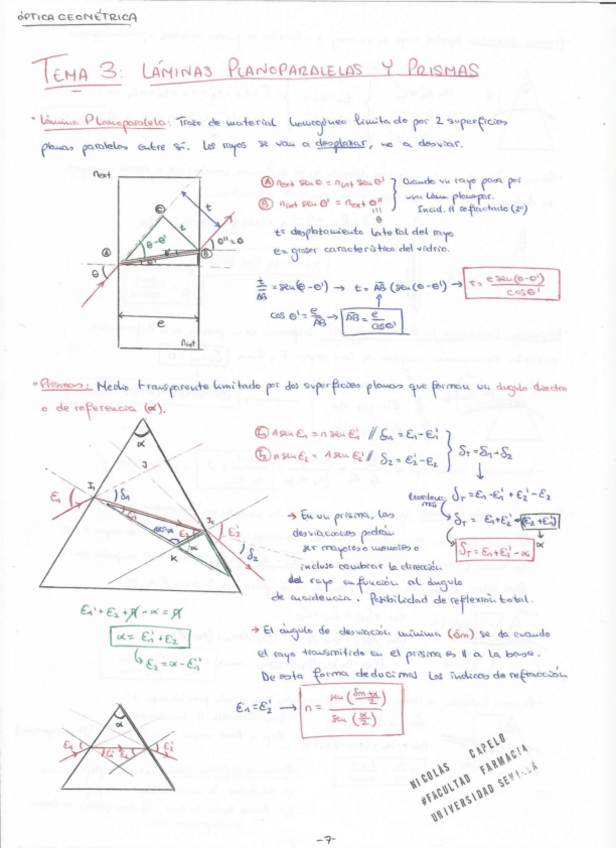 ÓPTICA GEOMÉTRICA
TEMA 3: LÁMINAS PLANOPARALELAS Y PRISMAS
Lámina Planoparalela: Trozo de material homogéneo limitado por 2 superficies
planas paralelas entre sí. Los rayos se van a desplazar, no a desviar.
next
A next sen θ = nint sen θ'
B nint sen θ' = next θ''
θ
Cuando un rayo pasa por
una lám. planopar.
Incid. // refractado (2º)
t = desplazamiento lateral del rayo
e = grosor característico del vidrio.
C
t
t
A
B
θ-θ'
θ'
θ''=θ
θ
e
nint
t/AB = sen(θ-θ') → t = AB (sen(θ-θ')) → t = e sen(θ-θ')/cosθ'
cos θ' = e/AB → AB = e/cosθ'
Prismas: Medio transparente limitado por dos superficies planas que forman un ángulo diedro
o de referencia (α).
α
I₁ 1 sen ε₁ = n sen ε₁' // δ₁ = ε₁-ε₁'
I₂ n sen ε₂ = 1 sen ε₂' // δ₂ = ε₂'-ε₂
δT = δ₁+δ₂
J
I₁
ε₁
δ₁
ε₁'
I₂
ε₂
ε₂'
δ₂
180-α
α
K
δT = ε₁-ε₁'+ε₂'-ε₂
δT = ε₁+ε₂'-(ε₂+ε₁')
α
δT = ε₁+ε₂'-α
→ En un prisma, las
desviaciones podrán
ser mayores o menores o
incluso cambiar la dirección
del rayo en función al ángulo
de incidencia. Posibilidad de reflexión total.
ε₁'+ε₂+π-α=π
α = ε₁'+ε₂
ε₂ = α-ε₁'
→ El ángulo de desviación mínima (δm) se da cuando
el rayo transmitido en el prisma es // a la base.
De esta forma deducimos los índices de refracción
ε₁=ε₂' → n = sen(δm+α/2)/sen(α/2)
α
ε₁
ε₁'
ε₂
ε₂'
NICOLÁS CAPELO
#FACULTAD FARMACIA
UNIVERSIDAD SEVILLA
-7-